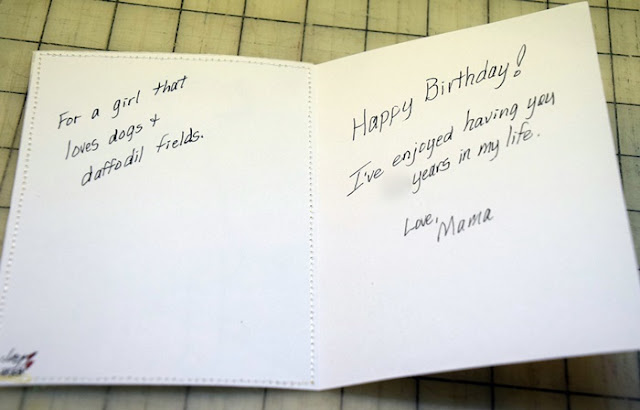 For a girl that
loves dogs +
daffodil fields.
Happy Birthday!
I've enjoyed having you
years in my life.
Love,
Mama